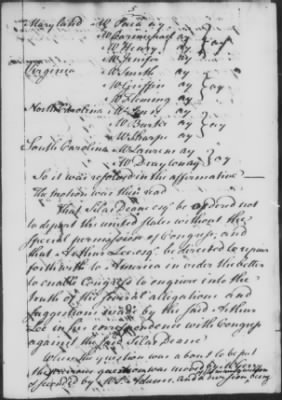 5
Maryland Mr Paca ay
Mr Carmichael ay
Mr Henry ay } ay
Mr Jenifer ay
Virginia Mr Smith ay
Mr Griffin ay } ay
Mr Fleming ay
North Carolina Mr Penn ay
Mr Burke ay } ay
Mr Sharpe ay
South Carolina Mr Laurens ay
Mr Drayton ay } ay
So it was resolved in the affirmative
The motion was then read
That Silas Deane esqr be ordered not
to depart the united states without the
special permission of Congress, and
that Arthur Lee esqr be directed to repair
forthwith to America in order the better
to enable Congress to enquire into the
truth of the several allegations and
suggestions made by the said Arthur
Lee in his correspondence with Congress
against the said Silas Deane
When the question was about to be put
the previous question was moved by
seconded by Mr S. Adams. and a division